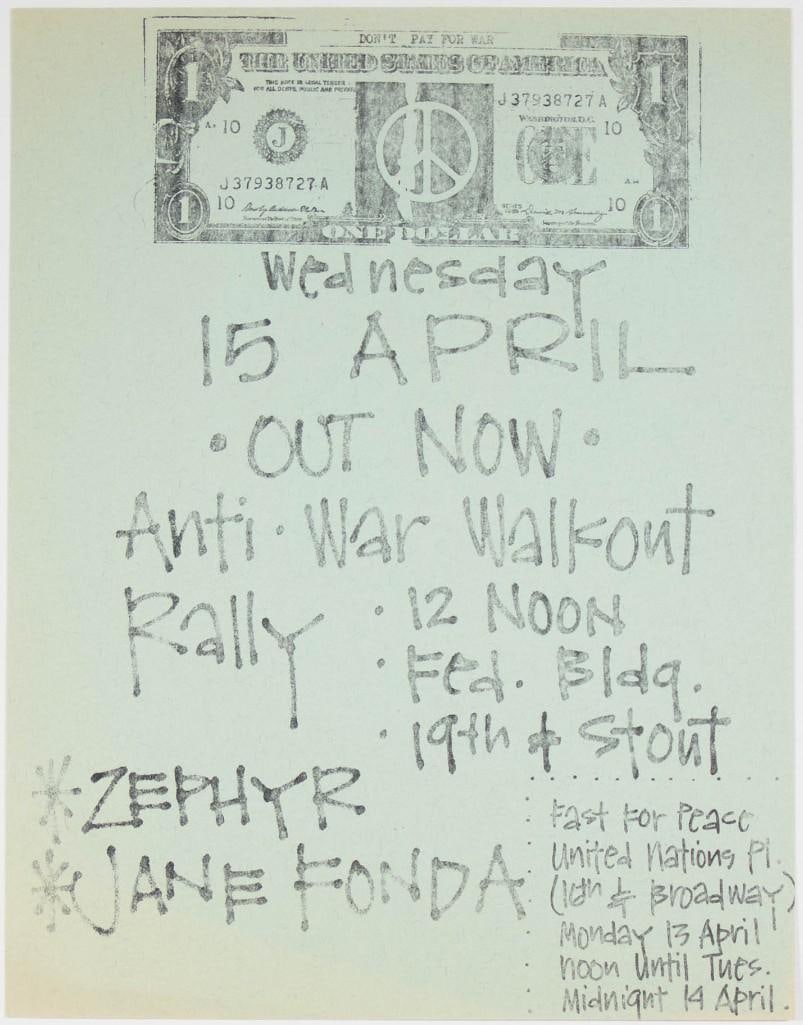 DON'T PAY FOR WAR
THE UNITED STATES OF AMERICA
THIS NOTE IS LEGAL TENDER
FOR ALL DEBTS, PUBLIC AND PRIVATE
J 37938727 A
WASHINGTON, D.C.
10 10
J
ONE
J 37938727 A
10 10
SERIES
1 1
1 1
ONE DOLLAR
Wednesday
15 APRIL
• OUT NOW •
Anti-War Walkout
Rally • 12 NOON
• Fed. Bldg.
• 19th & Stout
* ZEPHYR
* JANE FONDA
Fast For Peace
United Nations Pl.
(16th & Broadway)
Monday 13 April
noon Until Tues.
Midnight 14 April.